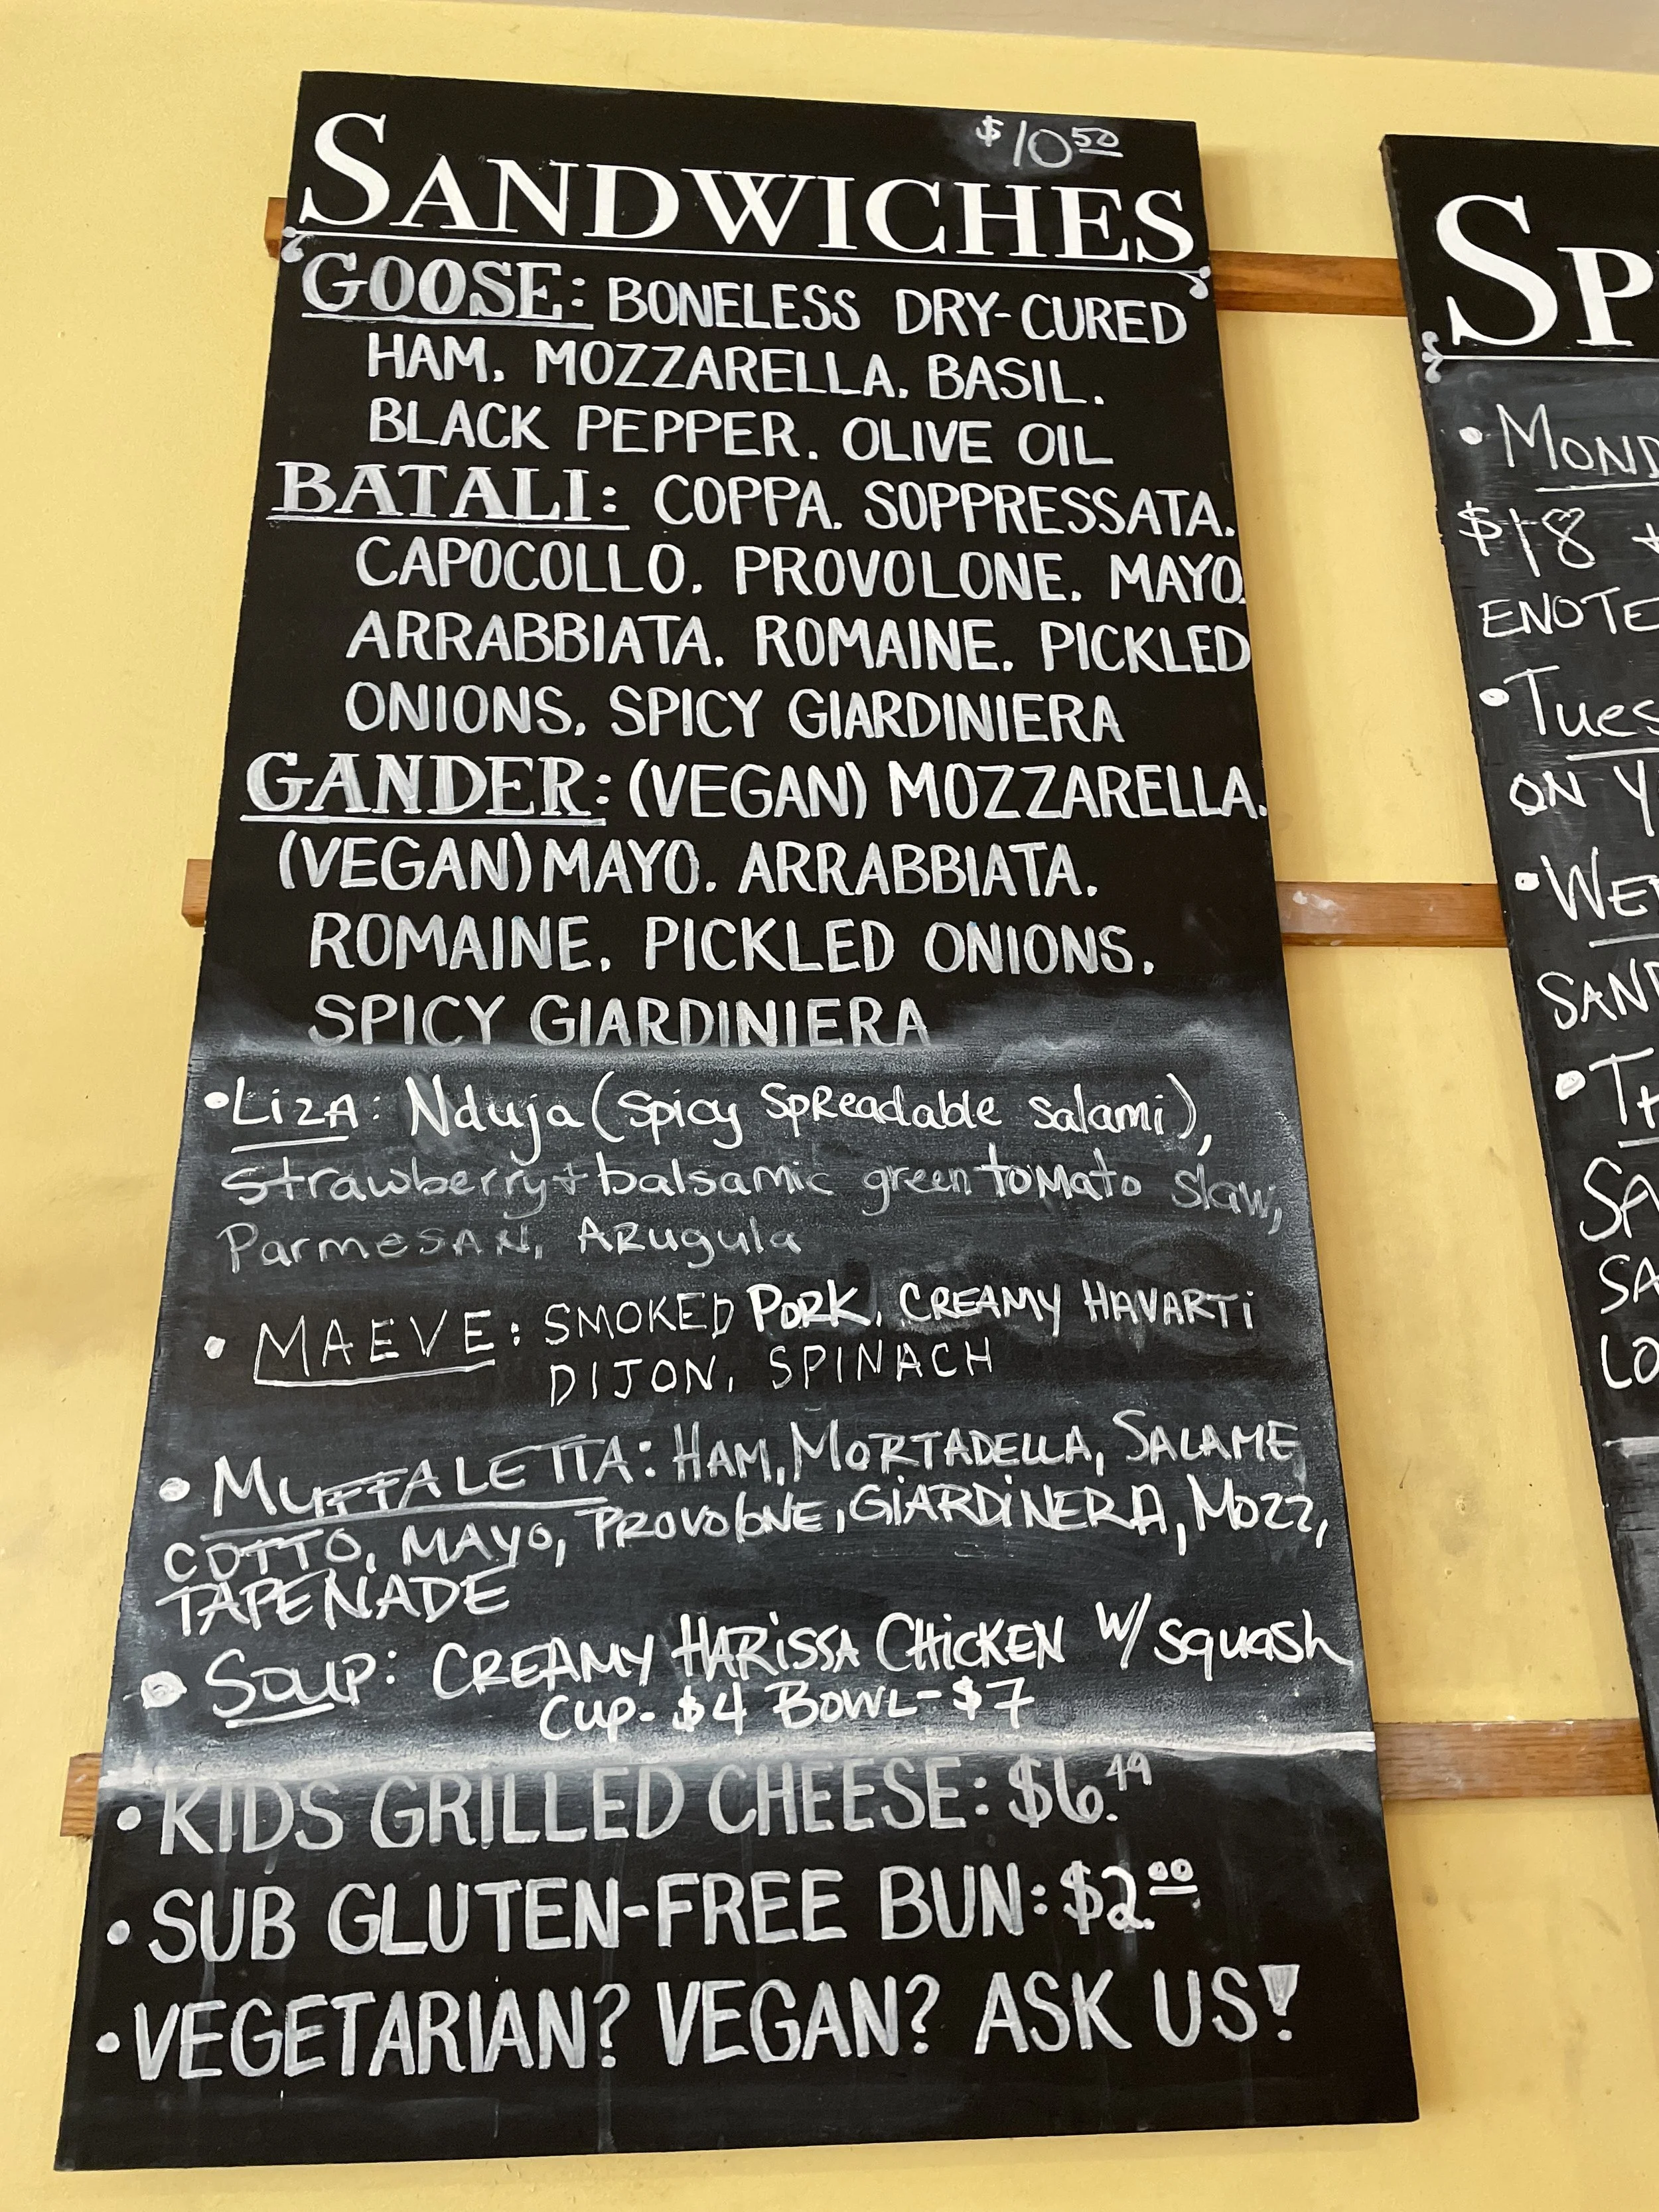 $10 50
SANDWICHES
GOOSE: BONELESS DRY-CURED
HAM. MOZZARELLA. BASIL.
BLACK PEPPER. OLIVE OIL
BATALI: COPPA. SOPPRESSATA.
CAPOCOLLO. PROVOLONE. MAYO.
ARRABBIATA. ROMAINE. PICKLED
ONIONS. SPICY GIARDINIERA
GANDER: (VEGAN) MOZZARELLA.
(VEGAN) MAYO. ARRABBIATA.
ROMAINE. PICKLED ONIONS.
SPICY GIARDINIERA
•LizA: Nduja (Spicy SpReadable salami),
Strawberry + balsamic green tomato slaw,
ParmesAN, ARugula
• MAEVE: SMOKED PORK, CREAMY HAVARTi
DIJON, SPINACH
• MUFFALETTA: HAM, MORTADELLA, SALAME
COTTO, MAYO, PROVOLONE, GIARDINERA, MOZZ,
TAPENADE
• SOUP: CREAMY HARISSA CHICKEN W/ squash
Cup- $4 BOWL- $7
• KIDS GRILLED CHEESE: $6.49
• SUB GLUTEN-FREE BUN: $2.00
• VEGETARIAN? VEGAN? ASK US!
SP
• MOND
$18 +
ENOTE
• Tues
ON Y
• WED
SAND
• TH
SA
SA
LO